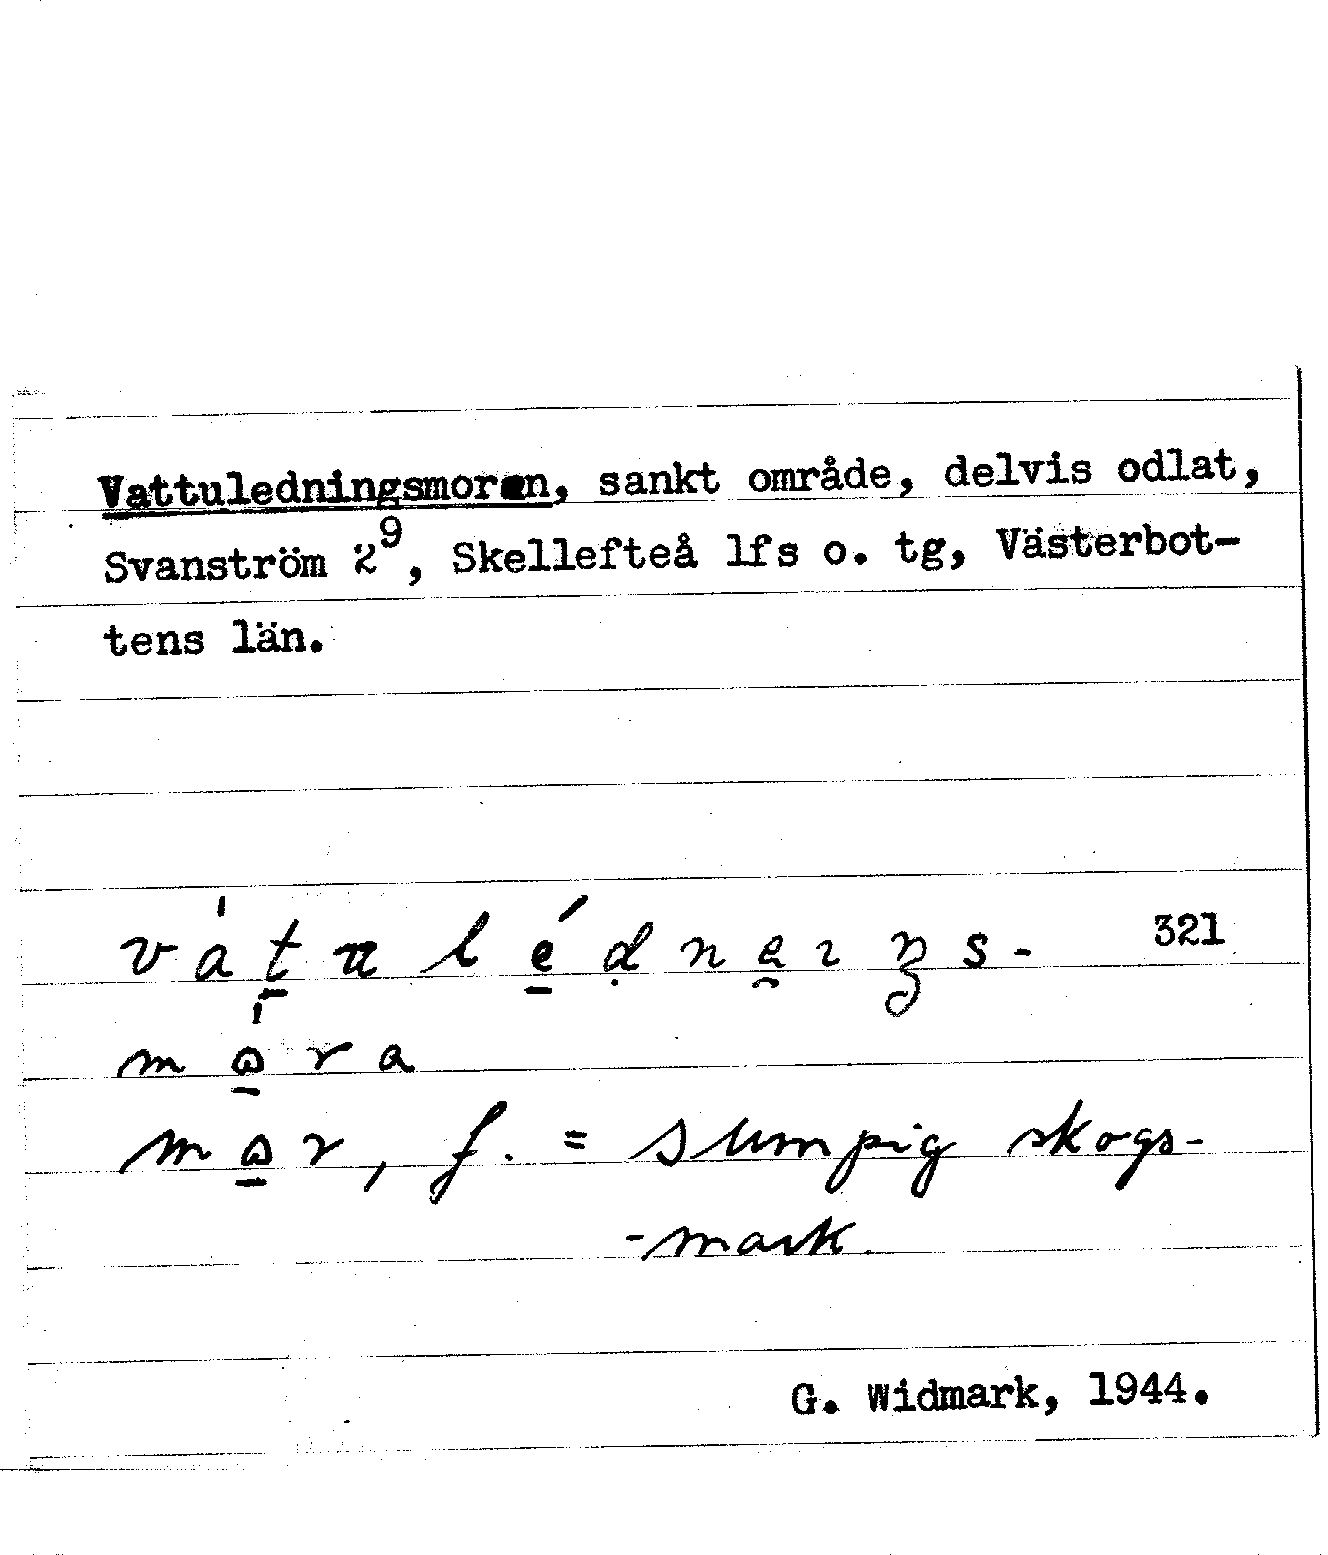 Vattuledningsmoran, sankt område, delvis odlat,
Svanström 2⁹, Skellefteå lfs o. tg, Västerbot-
tens län.
321
mɷ̱ra
mɷ̱r, f. = sumpig skogs-
-mark.
G. Widmark, 1944.